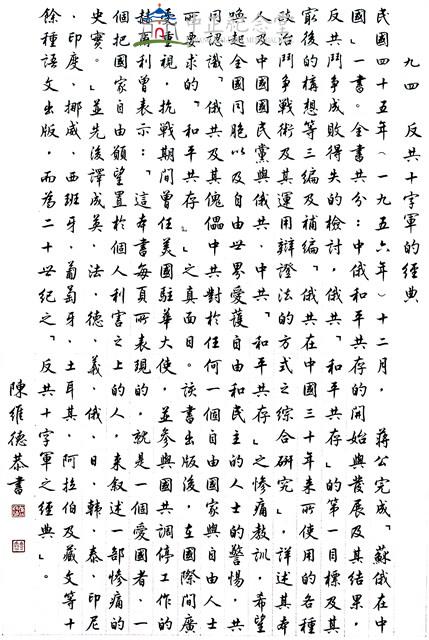 中正紀念堂
九四 反共十字軍的經典
民國四十五年（一九五六年）十二月，蔣公完成「蘇俄在中
國」一書。全書共分：中俄和平共存的開始與發展及其結果，
反共鬥爭成敗得失的檢討，俄共「和平共存」的第一目標及其
最後的構想等三編及補編「俄共在中國三十年來所使用的各種
政治鬥爭戰術及其運用辯證法的方式之綜合研究」，詳述其本
人及中國國民黨與俄共、中共「和平共存」之慘痛教訓，希望
喚起全國同胞以及自由世界愛護自由和民主的人士的警惕，共
同認識「俄共及其傀儡中共對於任何一個自由國家與自由人士
所要求的『和平共存』」之真面目。該書出版後，在國際間廣
受重視，抗戰期間曾任美國駐華大使，並參與國共調停工作的
赫爾利曾表示：「這本書每頁所表現的，就是一個愛國者，一
個把國家自由願望置於個人利害之上的人，來敘述一部慘痛的
史實。」並先後譯成英、法、德、義、俄、日、韓、泰、印尼
、印度、挪威、西班牙、葡萄牙、土耳其、阿拉伯及藏文等十
餘種語文出版，而為二十世紀之「反共十字軍之經典」。
陳維德恭書